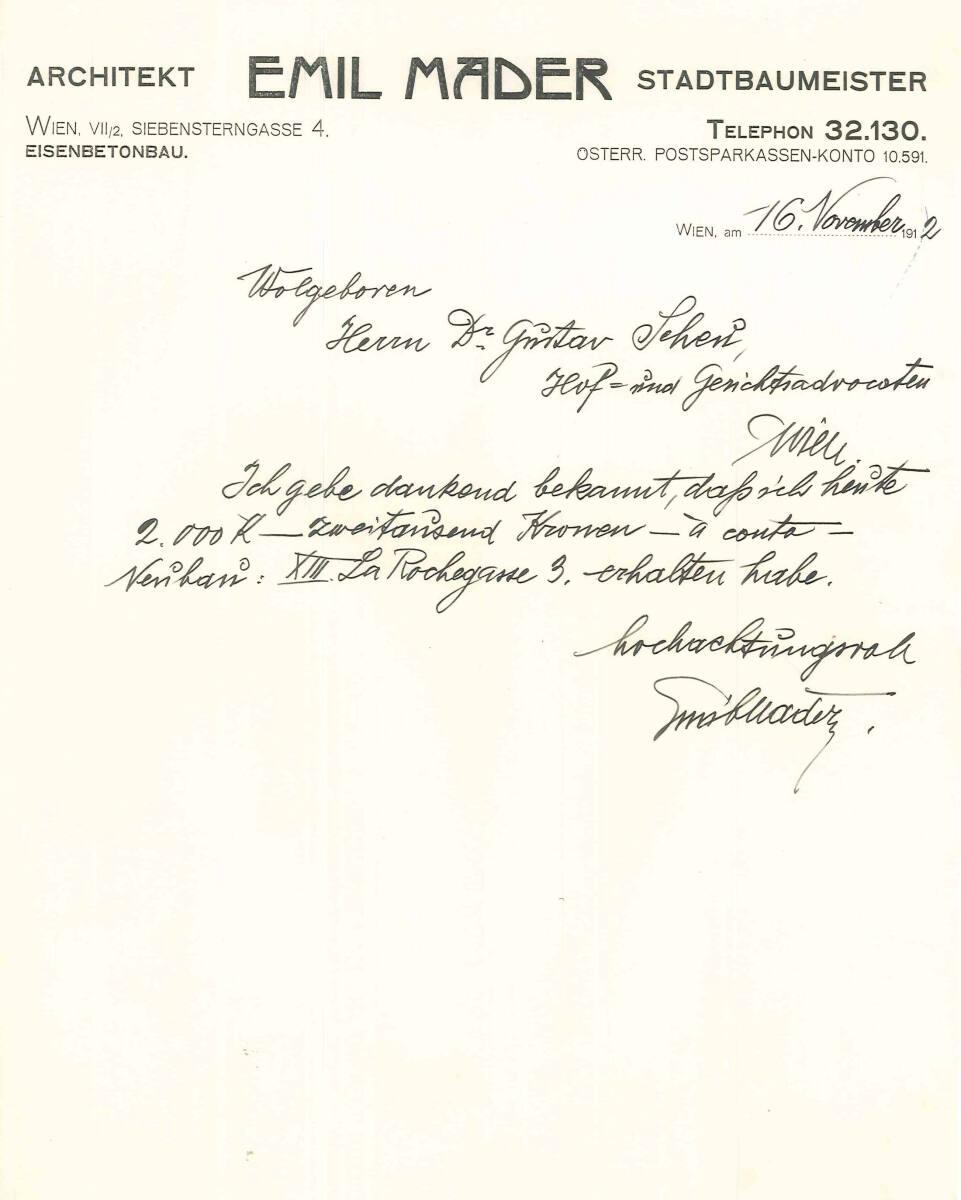 ARCHITEKT EMIL MADER STADTBAUMEISTER
WIEN, VII/2, SIEBENSTERNGASSE 4.
EISENBETONBAU.
TELEPHON 32.130.
ÖSTERR. POSTSPARKASSEN-KONTO 10.591.
WIEN, am 16. November 1912
Wolgeboren
Herrn Dr. Gustav Scheu,
Hof= und Gerichtsadvocaten
Wien.
Ich gebe dankend bekannt, daß ich heute
2.000 K — zweitausend Kronen — à conto —
Neubau: XIII. La Rochegasse 3. erhalten habe.
hochachtungsvoll
Emil Mader.